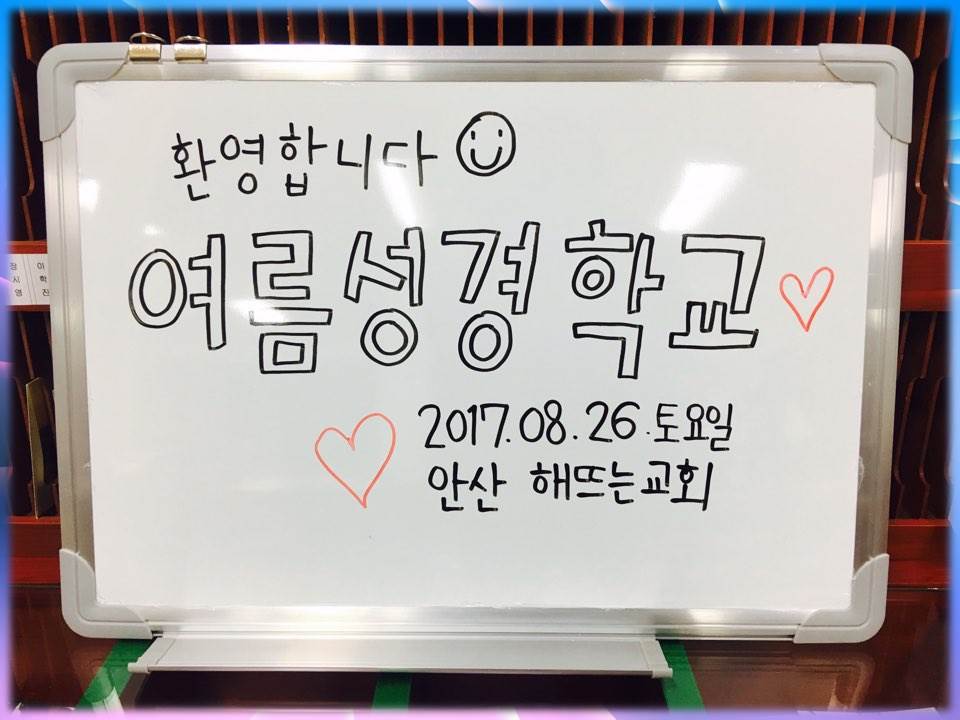 환영합니다
여름성경학교
2017.08.26.토요일
안산 해뜨는교회
이학진